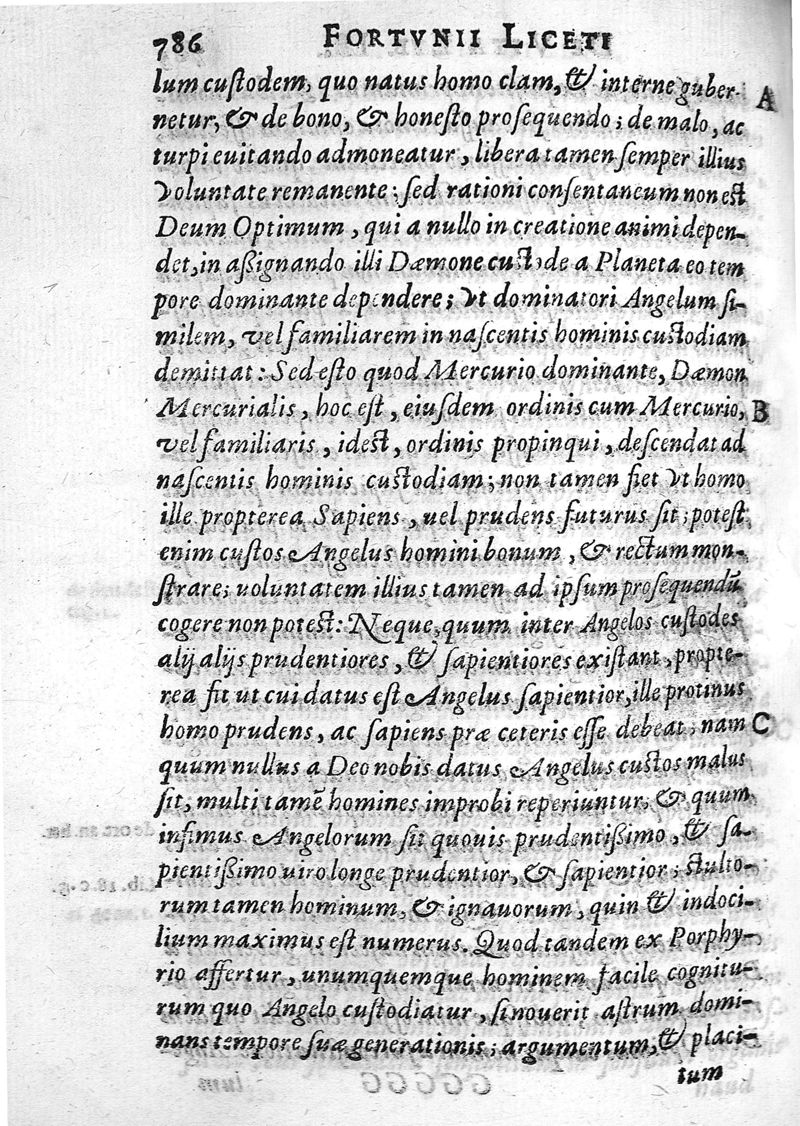 786 FORTVNII LICETI
lum cuſtodem, quo natus homo clam, & interne guber-
A
netur, & de bono, & honeſto proſequendo; de malo, ac
turpi euitando admoneatur, libera tamen ſemper illius
voluntate remanente: ſed rationi conſentaneum non eſt
Deum Optimum, qui a nullo in creatione animi depen-
det, in aßignando illi Dæmone cuſtode a Planeta eo tem
pore dominante dependere; vt dominatori Angelum ſi-
milem, vel familiarem in naſcentis hominis cuſtodiam
demittat: Sed eſto quod Mercurio dominante, Dæmon
Mercurialis, hoc eſt, eiuſdem ordinis cum Mercurio,
B
vel familiaris, ideſt, ordinis propinqui, deſcendat ad
naſcentis hominis cuſtodiam; non tamen fiet vt homo
ille propterea Sapiens, uel prudens futurus ſit; poteſt
enim cuſtos Angelus homini bonum, & rectum mon-
ſtrare; uoluntatem illius tamen ad ipſum proſequendū
cogere non poteſt: Neque, quum inter Angelos cuſtodes
alij alijs prudentiores, & ſapientiores exiſtant, propte-
rea fit ut cui datus eſt Angelus ſapientior, ille protinus
homo prudens, ac ſapiens præ ceteris eſſe debeat; nam
C
quum nullus a Deo nobis datus Angelus cuſtos malus
ſit, multi tamē homines improbi reperiuntur; & quum
infimus Angelorum ſit quouis prudentißimo, & ſa-
pientißimo uiro longe prudentior, & ſapientior; ſtulto-
rum tamen hominum, & ignauorum, quin & indoci-
lium maximus eſt numerus. Quod tandem ex Porphy-
rio affertur, unumquemque hominem facile cognitu-
rum quo Angelo cuſtodiatur, ſi nouerit aſtrum domi-
nans tempore ſuæ generationis; argumentum, & placi-
tum